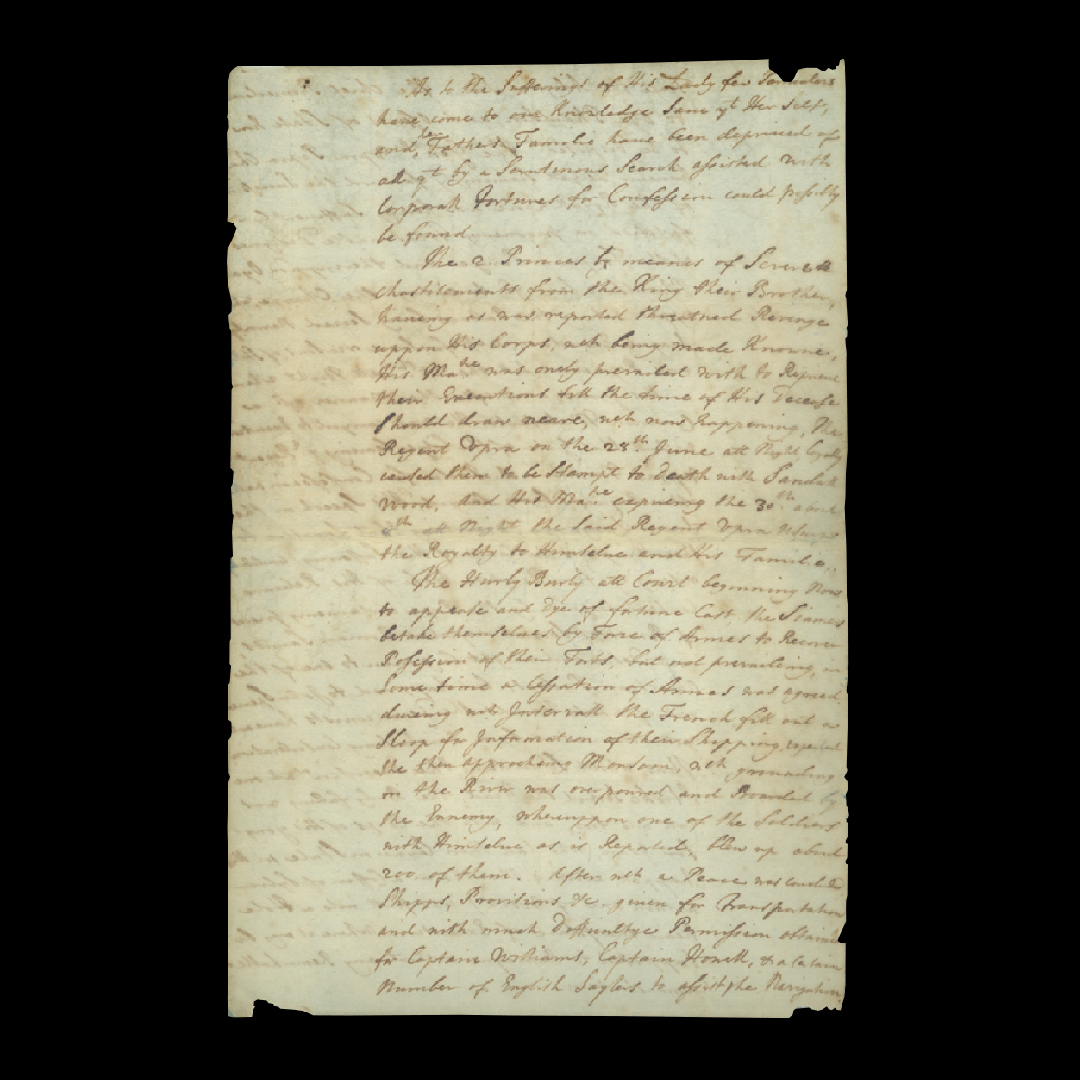 As to the Sufferings of His Lady few Perticulers
have come to our Knowledge Same yt Her Self,
and her Fathers Familie have been deprived of
all yt by a Scrutenous Search assisted with
Corporall Tortures for Confession could possibly
be found
The 2 Princes by meanes of Severe
Chastisements from the King their Brother,
haveing as was reported threatned Revenge
uppon His Corps, wch being made Knowne,
His Matie was onely prevailed with to Repreive
their Executions till the time of His Decease
should draw neare, wch now happening, the
Regent Opra on the 28th June att Night
caused them to be Stampt to Death with Sandall
wood, And His Matie expireing the 30th about
th att Night the Said Regent Opra Usurpt
the Royalty to Himselve and His Familie.
The Hurly Burly att Court beginning Now
to appease and Dye of fortune Cast, the Siames
betake themselves by Force of Armes to Recover
Posession of their Forts, but not prevaileing, in
Some time a Cessation of Armes was agreed
dureing wch Intervall the French fitt out a
Sloop for Information of their Shipping, expected
the then approcheing Monsoon, wch grounding
on the River was overpowred and Boarded by
the Ennemy, whereuppon one of the Soldiers
with Himselve as is Reported, blew up about
200 of them. After wch a Peace was
Shipps, Provisions &c. given for Transportation
and with much Difficultye Permission obtained
for Captane Williams, Captain Howell, & a Certain
Number of English Saylers to assist the Navigation